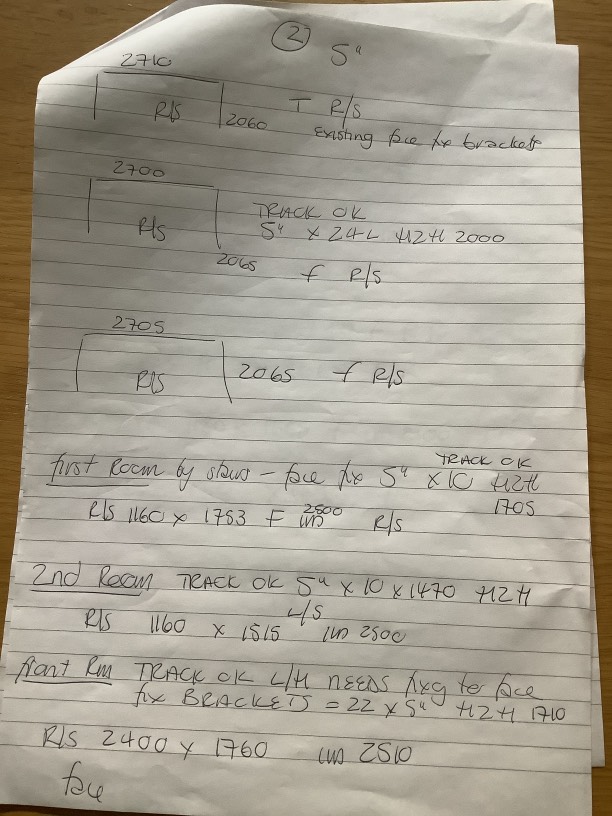 2 5"
2710
R/S 2060 T R/S
Existing face fix brackets
2700
TRACK OK
R/S 5" x 24 L H2H 2000
2065 f R/S
2705
R/S 2065 f R/S
TRACK OK
first Room by stairs - face fix 5" x 10 H2H
1705
R/S 1160 x 1783 F 2500 R/S
2nd Room TRACK OK 5" x 10 x 1470 H2H
L/S
R/S 1160 x 1515 2500
front Rm TRACK OK L/H NEEDS fixg to face
fix BRACKETS = 22 x 5" H2H 1710
R/S 2400 x 1760 2510
face